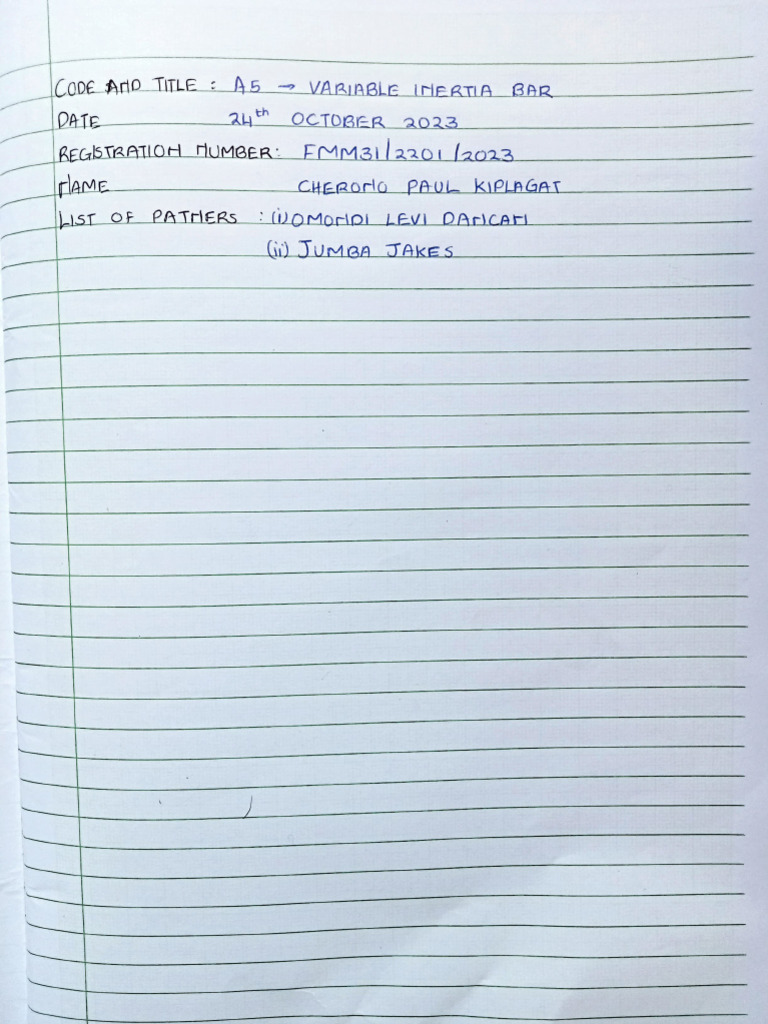 CODE AND TITLE : A5 → VARIABLE INERTIA BAR
DATE 24th OCTOBER 2023
REGISTRATION NUMBER: FMM31/2201/2023
NAME CHERONO PAUL KIPLAGAT
LIST OF PATNERS : (i) OMONDI LEVI DANCAN
(ii) JUMBA JAKES